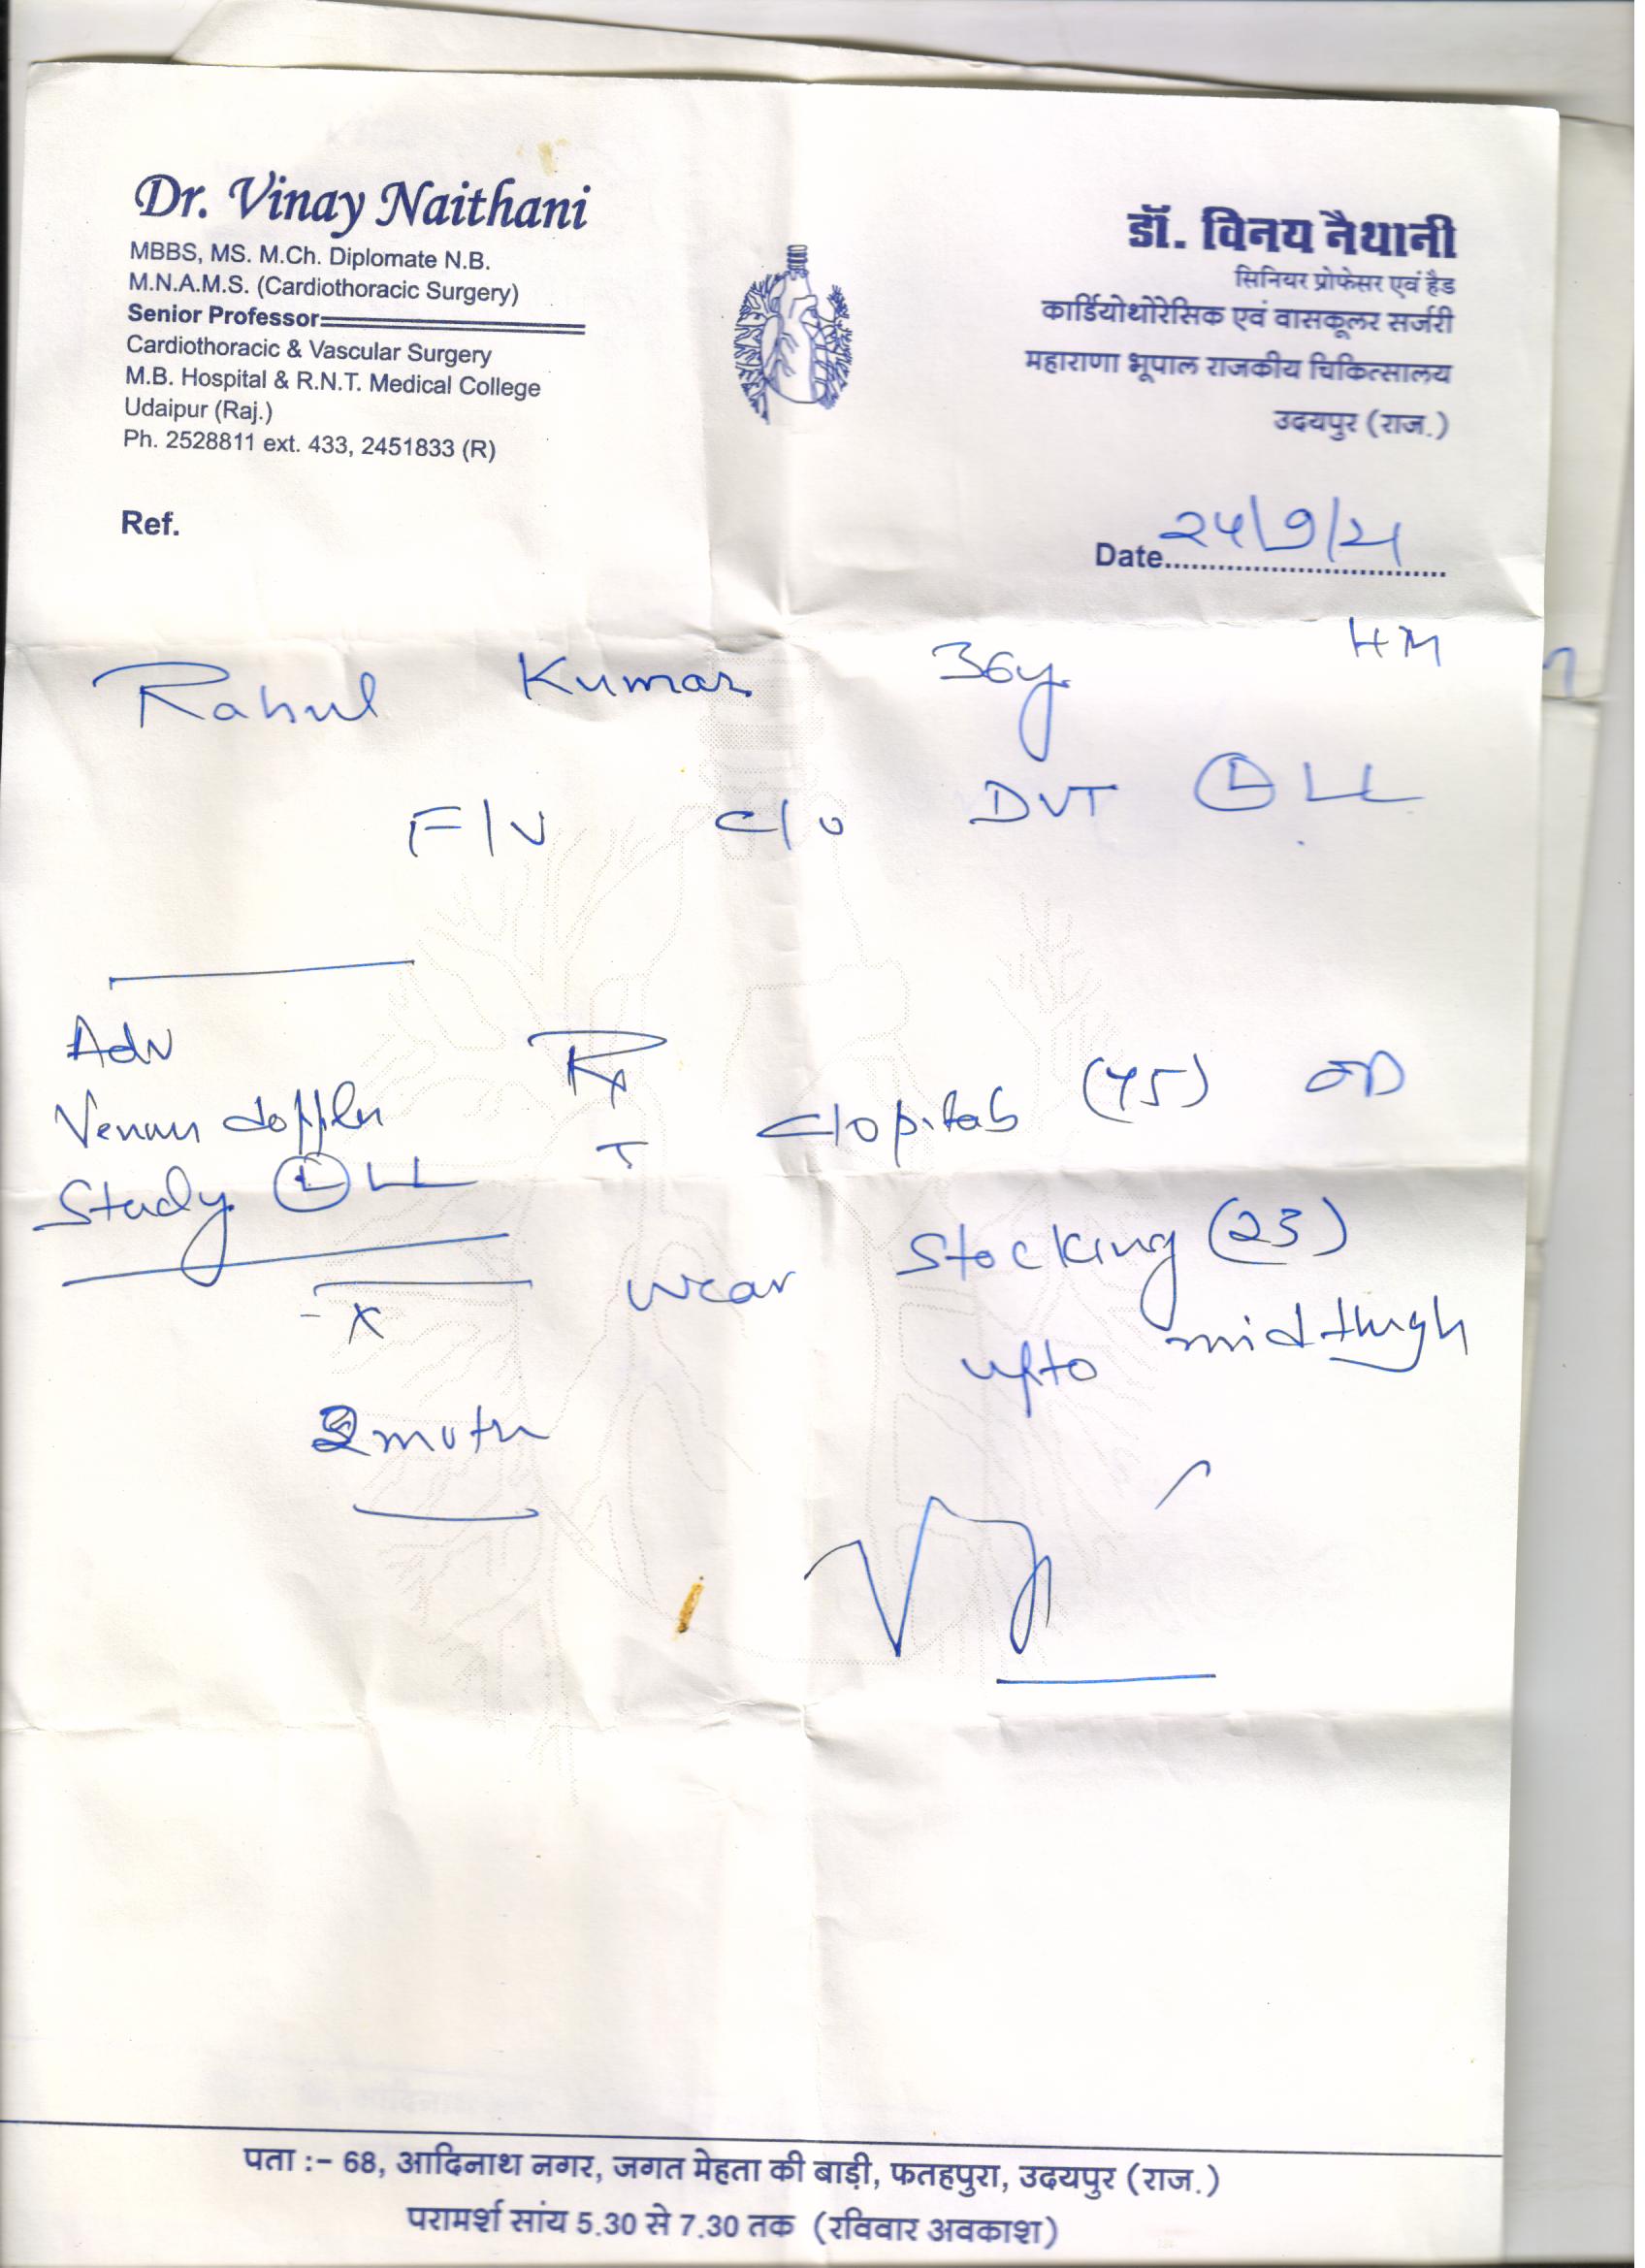 Dr. Vinay Naithani
MBBS, MS. M.Ch. Diplomate N.B.
M.N.A.M.S. (Cardiothoracic Surgery)
Senior Professor
Cardiothoracic & Vascular Surgery
M.B. Hospital & R.N.T. Medical College
Udaipur (Raj.)
Ph. 2528811 ext. 433, 2451833 (R)
Ref.
डॉ. विनय नैथानी
सिनियर प्रोफेसर एवं हैड
कार्डियोथोरेसिक एवं वासकूलर सर्जरी
महाराणा भूपाल राजकीय चिकित्सालय
उदयपुर (राज.)
Date 24/9/21
Rahul Kumar 36y HM
F/U c/o DVT Ⓛ LL
Adv
Venous doppler
Study Ⓛ LL
Rx
T Clopitab (75) OD
wear Stocking (23)
upto midthigh
x
पता :- 68, आदिनाथ नगर, जगत मेहता की बाड़ी, फतहपुरा, उदयपुर (राज.)
परामर्श सांय 5.30 से 7.30 तक (रविवार अवकाश)